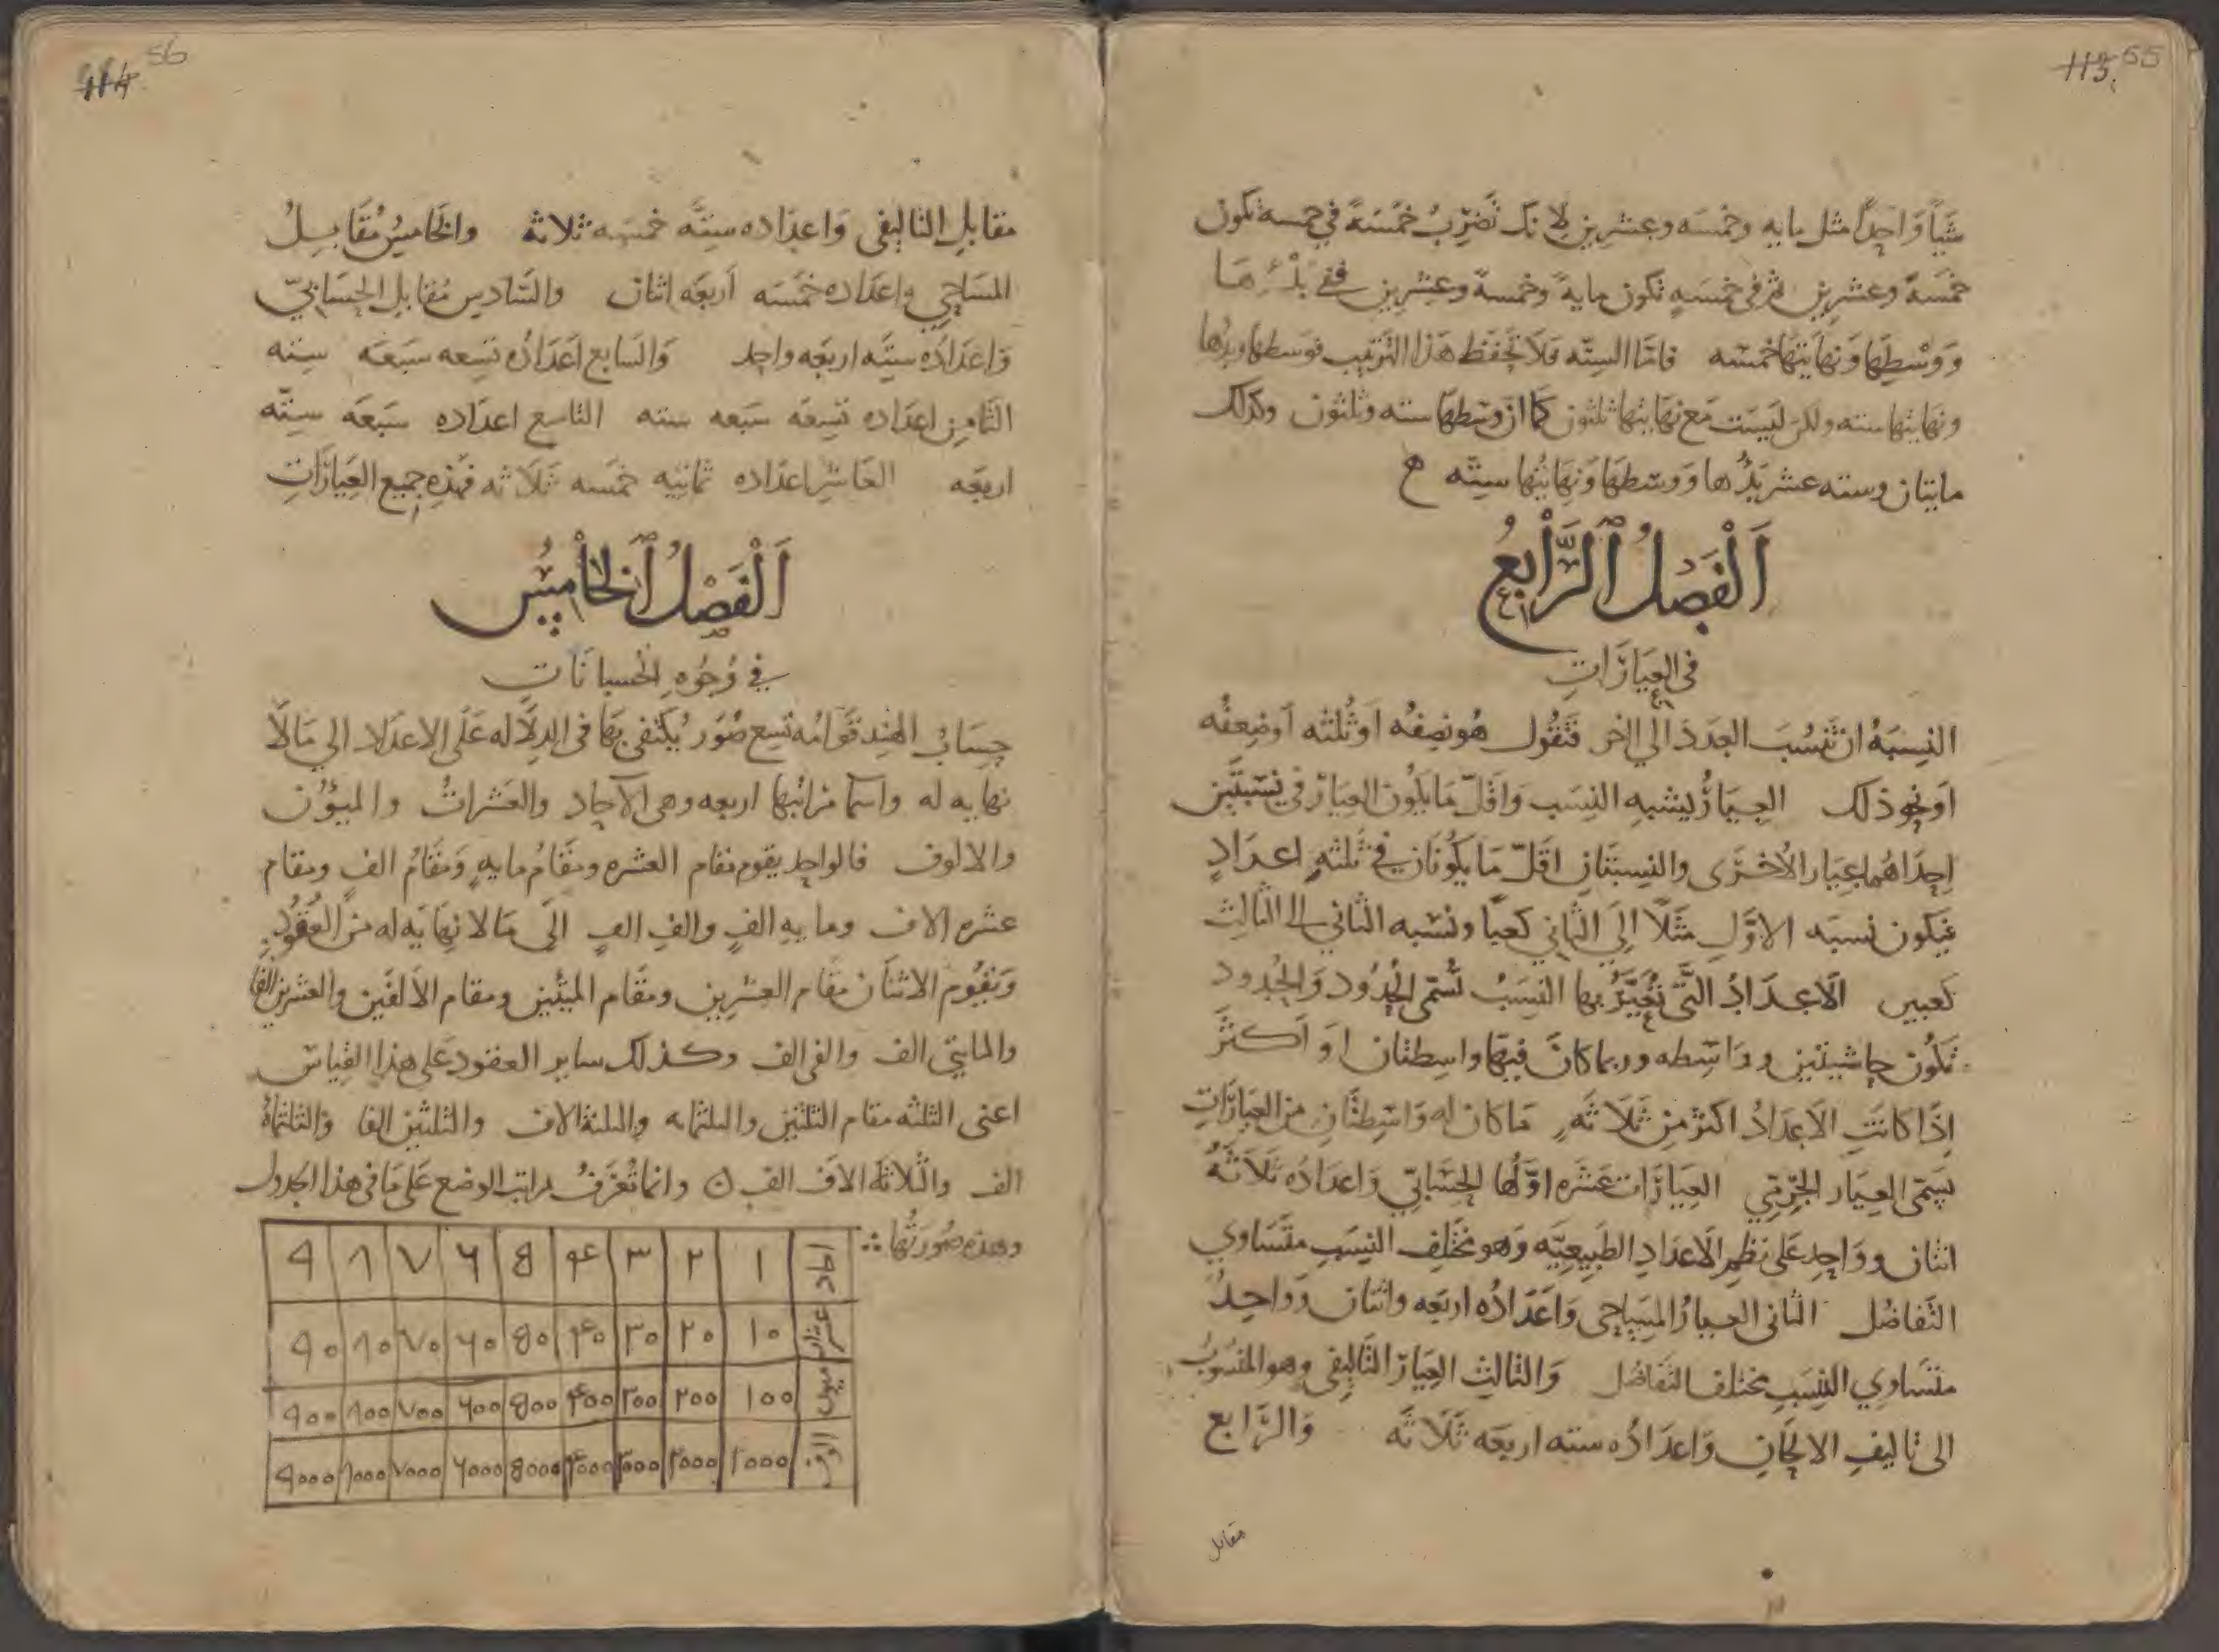 113. 55
شيأ واحدًا مثل مايه وخمسه وعشرين لانك تضرب خمسةً في خمسه تكون
خمسةً وعشرين ثم في خمسه تكون مايةً وخمسةً وعشرين ففي بدئها
ووسطها ونهايتها خمسه فاما السته فلا تحفظ هذا الترتيب فوسطها وبدُها
ونهايتها سته ولكن ليست مع نهايتها ثلثون كما ان وسطها سته وثلثون وكذلك
مايتان وسته عشر بدُها ووسطها ونهايتها سته ح
اَلْفَصْلُ اَلرَّابِعُ
في العِيَارَاتِ
النسِبَهُ ان تنسُبَ العدَدَ الي اخر فتقُول هو نصِفُه اوثُلثه اَوضِعفُه
اَو نحو ذلك العِيَارُ يشبه النسَب وَاقَلّ مَا يكُون العِيَار في نِسْبتَين
اِحدَاهُما بعِيَار الاُخْرَى والنِسبتَانِ اقَلّ مَا يكُونَان في ثلثهِ اعدَادٍ
فيكون نسبَه الاوَّلِ مثَلاً اِلَي الثَّاني كعيَا ونسْبه الثاني الى الثالثِ
كعيں الاَعدَادُ التَّى تُعَيَّرُ بها النسَبُ تسُمّى الحُدُود وَالحُدود
تكُون حاشيتَين وواسِطه وربما كانَ فيهَا واسِطتان اوَ اَكثرَ
اِذَا كانَتِ الاَعدَادُ اكثرَ مِن ثَلاَثَهٍ مَا كان له وَاسِطتَانِ من العيَارَاتِ
يسَمّى العِيَار الجِرمّي العِيَارَات عَشَره اوّلُها الحِسَابّي وَاعدَادُه ثلاَثهُ
اثنان وواحد عَلى نظم الاَعدَادِ الطَبيعِيّه وَهو مختَلِف النِسَبِ متَسَاوي
التَفاضُل الثانى العِيارُ المِسَاحى وَاَعدَادُه اربَعه واثنان وَوَاحِدُ
متسَاوي النِسَبِ مختلف التفَاضُل وَالثالِث العِيَار التَّالِيفى وهو المنسُوبُ
الى تاليفِ الالحَانِ وَاعدَادُه سته اربعَه ثلاَثَه وَالرَّابع
مقابل
114. 56
مقابل التاليفى وَاعدَاده سِتّه خمسَه ثلاثه والخَامِسُ مُقَابِلُ
المسَاحِي واعدَاده خمَسَه اَربعَه اثنان والسَّادِس مُقابل الحِسَابيّ
وَاعدَادُه سِتَّه اربعَه واحد وَالسَابع اَعدَادُه تسِعه سَبَعَه سِته
الثَّامِن اعدَاده تسِعَه سَبعه سته التاسع اعدَاده سَبَعَه سِتّه
اربعَه العَاشِر اعدَاده ثمانيه خمَسه ثَلاَثه فهَذِه جميع العِيَارَاتِ
اَلْفَصْلُ اَلْخَامِسُ
في وُجُوُهِ الحُسبانَاتِ
حِسَابُ الهند قوَامُه تسِع صُوَر يُكتفى بهَا في الدلاَله عَلَى الاعدَاد الي مَا لاَ
نهايه له واسمَا مرَاتبها اربعه وهى الآحاد والعَشراتُ والمِيؤن
والالوف فالواحِد يقوم مقام العشره ومقَامُ مايهٍ وَمقَامُ الفٍ ومقام
عشره الاف ومايه الفٍ والف الفٍ الَى مَا لا نِهَايَه له من العُقُودِ
وَيقُوم الاثنَان مقَام العشرين ومقَام الميئَين ومقام الاَلفَين والعشرين الفاً
والمايتى الف والفى الف وكذلك ساير العقود عَلى هذا القِياس
اعنى الثلثه مقام الثلثين والثلثمايه والثلثة الاف والثلثين الفا والثلثمايهُ
الف والثلاثَه الاف الف ه وانما تُعرَفُ مراتب الوضع عَلى مَا فى هذا الجَدول
وهذه صُورَتُها ∴
احاد ١ ٢ ٣ ۴ 8 ۶ ٧ ٨ ٩
عشرات ١٠ ٢٠ ٣٠ ۴٠ 8٠ ۶٠ ٧٠ ٨٠ ٩٠
ميون ١٠٠ ٢٠٠ ٣٠٠ ۴٠٠ 8٠٠ ۶٠٠ ٧٠٠ ٨٠٠ ٩٠٠
الوف ١٠٠٠ ٢٠٠٠ ٣٠٠٠ ۴٠٠٠ 8٠٠٠ ۶٠٠٠ ٧٠٠٠ ٨٠٠٠ ٩٠٠٠